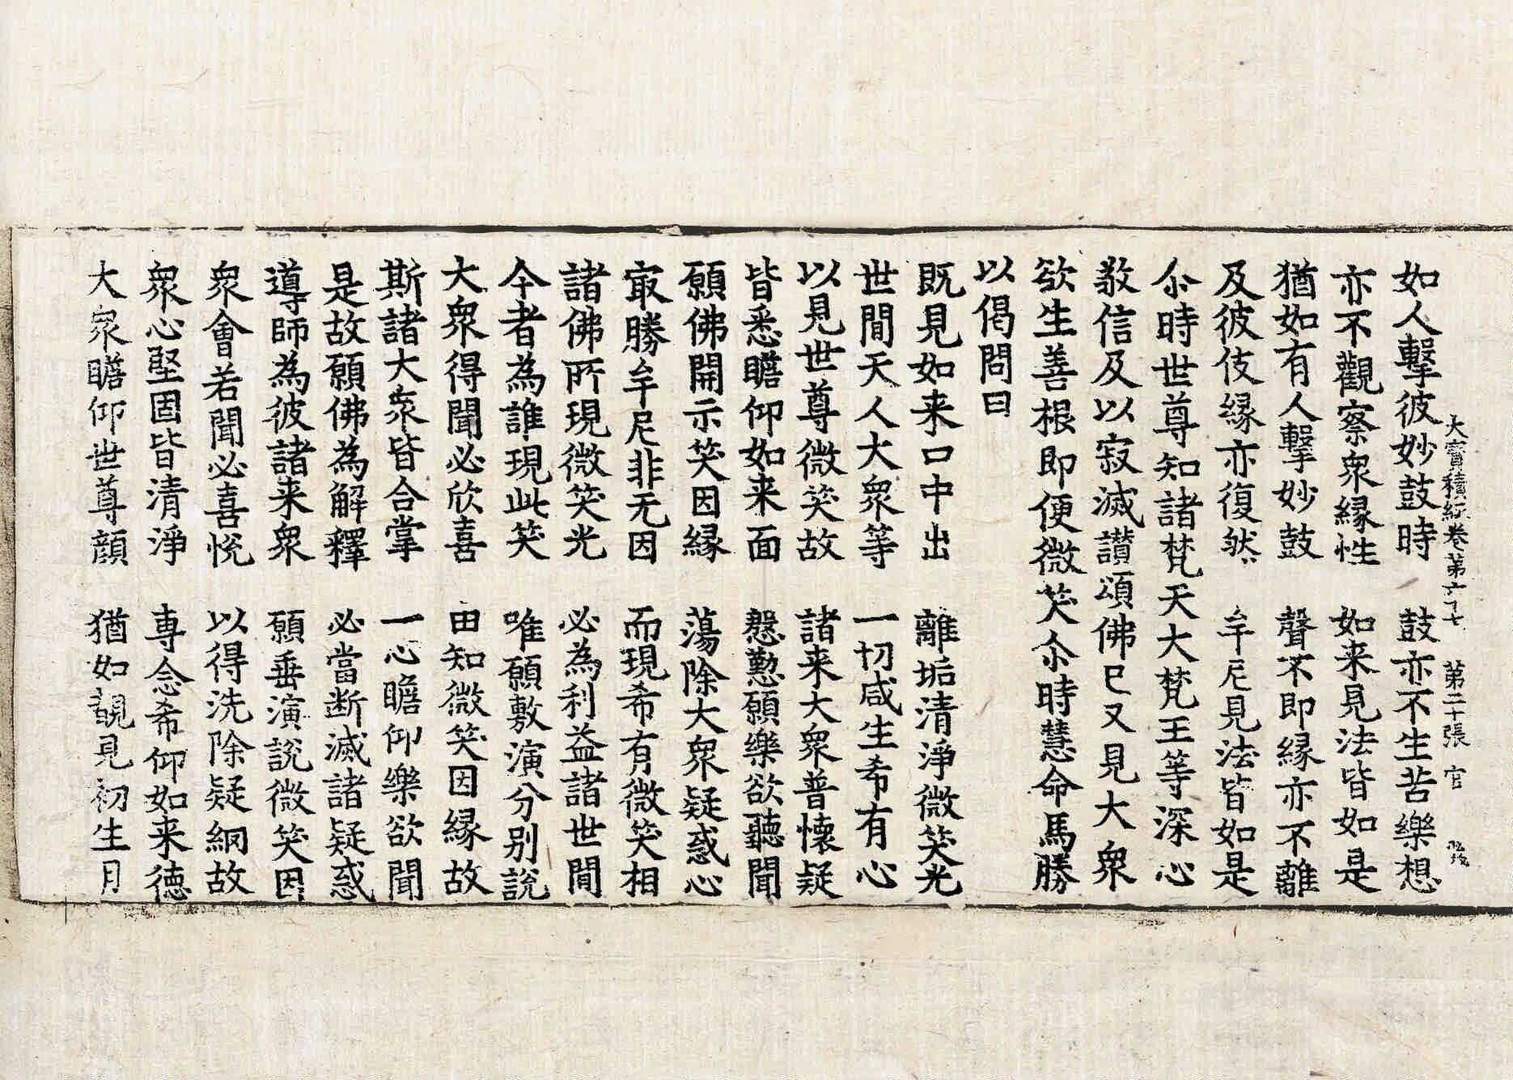 大寶積經卷第六十七 第二十張 官
如人擊彼妙鼓時 鼓亦不生苦樂想
亦不觀察衆縁性 如来見法皆如是
猶如有人擊妙鼓 聲不即縁亦不離
及彼伎縁亦復然 牟尼見法皆如是
尒時世尊知諸梵天大梵王等深心
敬信及以寂滅讃頌佛已又見大衆
欲生善根即便微笑尒時慧命馬勝
以偈問曰
既見如来口中出 離垢清淨微笑光
世間天人大衆等 一切咸生希有心
以見世尊微笑故 諸来大衆普懷疑
皆悉瞻仰如来面 慇懃願樂欲聽聞
願佛開示笑因縁 蕩除大衆疑惑心
冣勝牟尼非无因 而現希有微笑相
諸佛所現微笑光 必為利益諸世間
今者為誰現此笑 唯願敷演分别說
大衆得聞必欣喜 由知微笑因縁故
斯諸大衆皆合掌 一心瞻仰樂欲聞
是故願佛為解釋 必當断滅諸疑惑
導師為彼諸来衆 願垂演說微笑因
衆會若聞必喜悅 以得洗除疑網故
衆心堅固皆清淨 専念希仰如来德
大衆瞻仰世尊顔 猶如覩見初生月